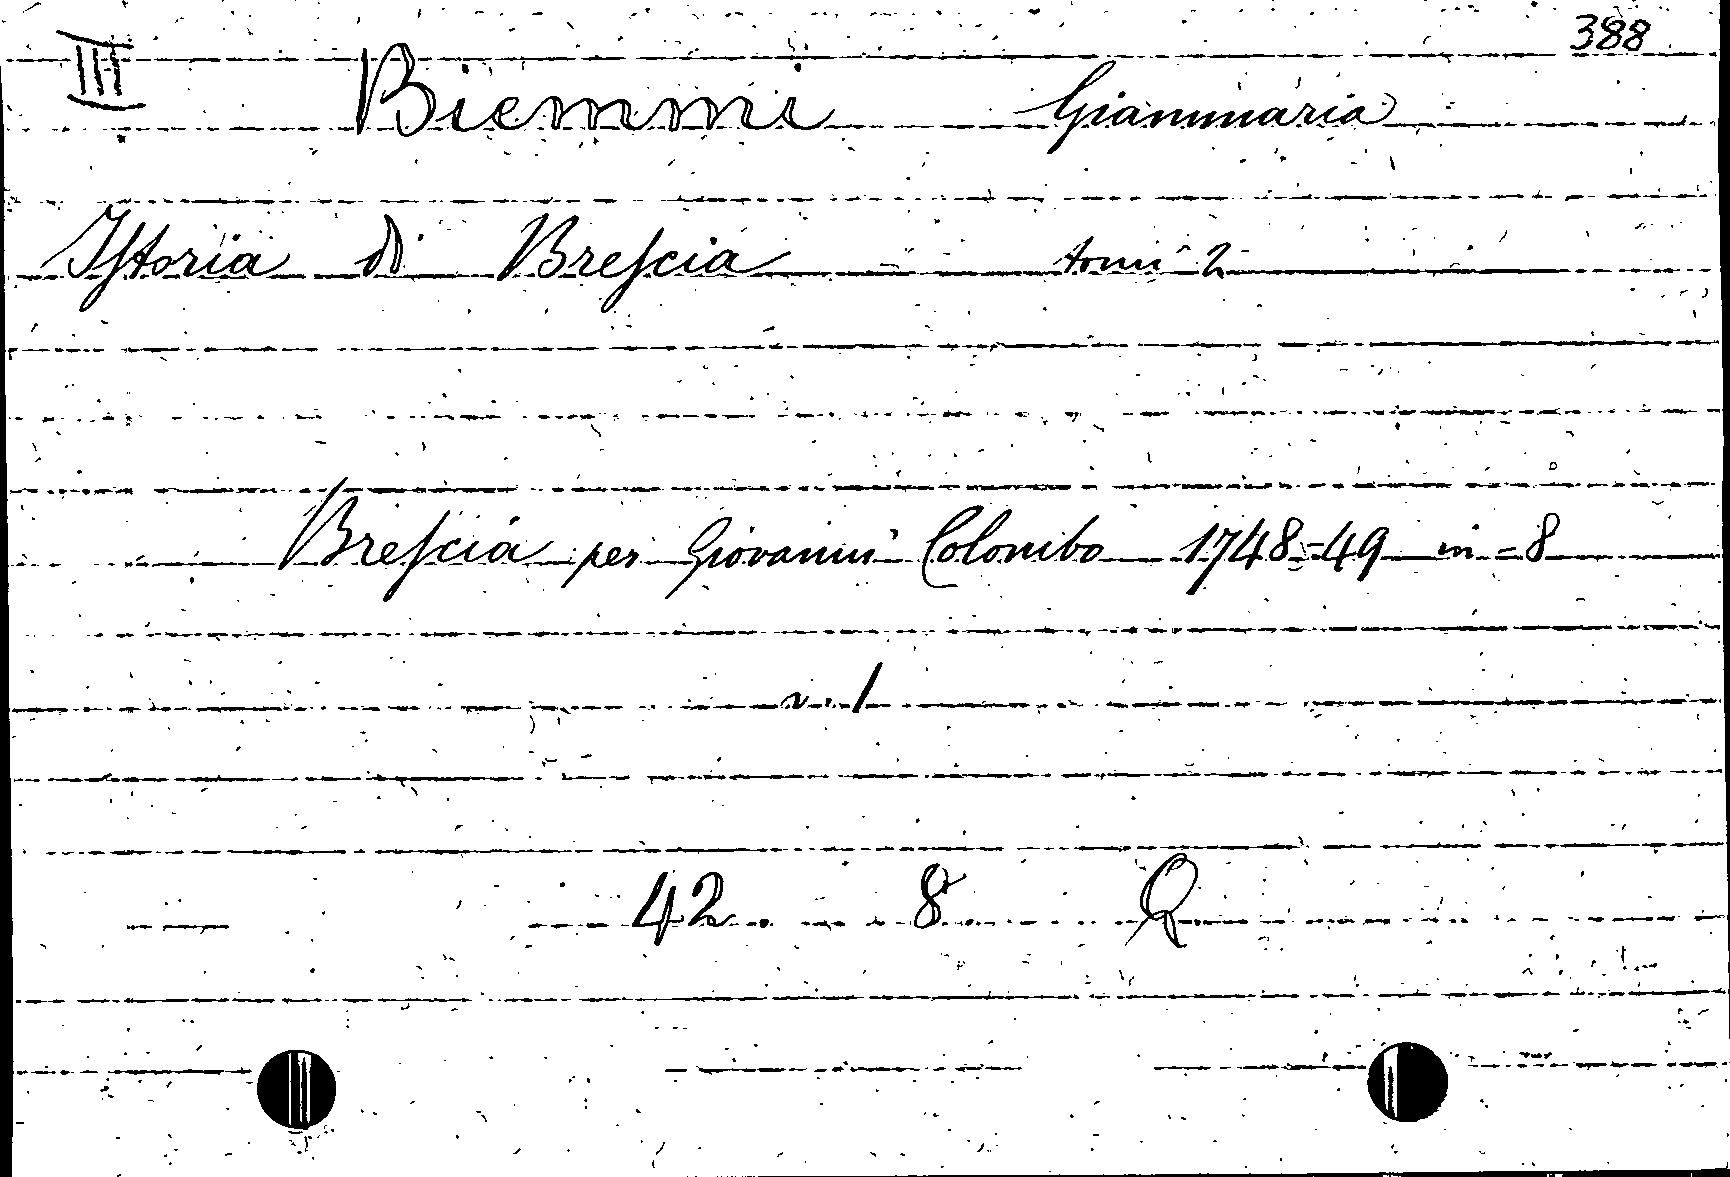 388
III Biemmi Giammaria
Iſtoria di Breſcia tomi 2
Breſcia per Giovanni Colombo 1748=49 in=8
v. 1
42 8 Q